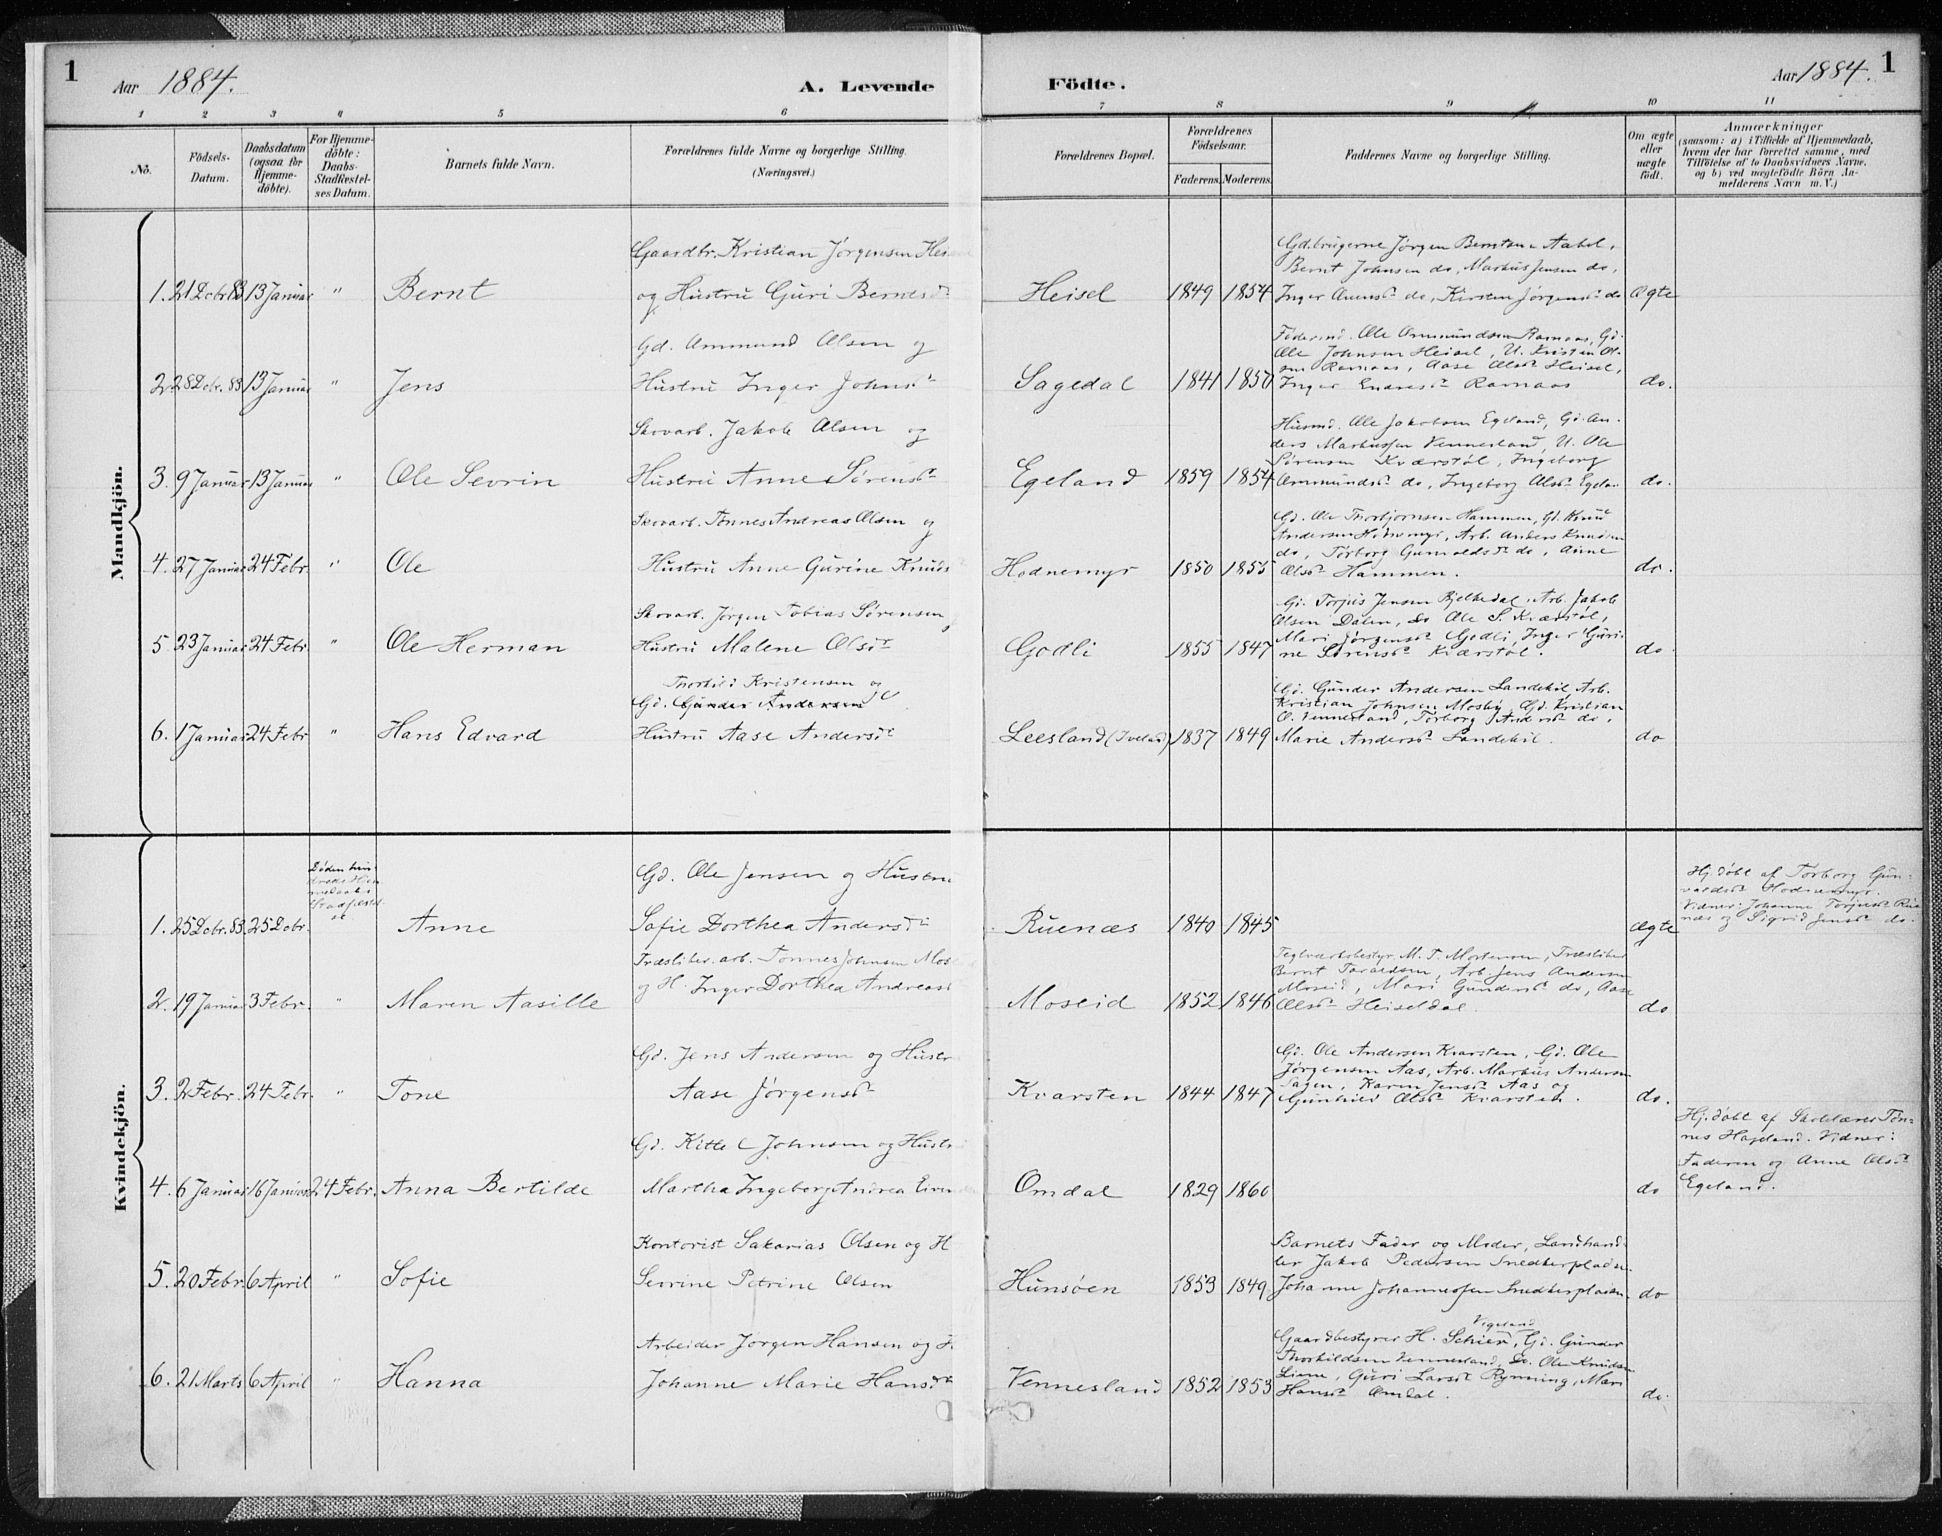 1
Aar 1884.
A. Levende
Födte.
Aar 1884.
1
1 2 3 4 5 6 7 8 9 10 11
No.
Födsels-
Datum.
Daabsdatum
(ogsaa for
Hjemme-
döbte).
For Hjemme-
döbte:
Daabs-
Stadfæstel-
ses Datum.
Barnets fulde Navn.
Forældrenes fulde Navne og borgerlige Stilling.
(Næringsvei.)
Forældrenes Bopæl.
Forældrenes
Födselsaar.
Faderens. Moderens.
Faddernes Navne og borgerlige Stilling.
Om ægte
eller
uægte
födt.
Anmærkninger
(saasom: a) i Tilfælde af Hjemmedaab,
hvem der har forrettet samme, med
Tilföielse af to Daabsvidners Navne,
og b) ved uægtefödte Börn An-
melderens Navn m. V.)
Mandkjön.
Gaardbr. Kristian Jørgensen
1. 21 Dcbr. 83 13 Januar " Bernt
og Hustru Guri Berntsd
Heisel 1849 1854
Gd.brugerne Jørgen Berntsen Aabel,
Bernt Johnsen do, Markus Jensen do,
Inger do, Kirsten Jørgensd do
Ægte
Gd. Ammund Olsen og
2. 28 Dcbr. 83 13 Januar " Jens
Hustru Inger Johnsd
Sagedal 1841 1850
Föderaad. Ole Ommundsen Ramaas, Gd.
Ole Johnsen Heisel, U. Kristen Ol-
sen Ramaas, Aase Olsd Heisel,
Inger Ramaas
do.
Skovarb. Jakob Olsen og
3. 9 Januar 13 Januar " Ole Sevrin
Hustru Anne Sørensd
Egeland 1859 1854
Husmd. Ole Jakobsen Egeland, Gd. An-
ders Markussen Vennesland, U. Ole
Sørensen Kværstøl, Ingeborg
Ommundsd do, Ingeborg Olsd
do.
Skovarb. Tønnes Andreas Olsen og
4. 27 Januar 24 Febr. " Ole
Hustru Anne Gurine
Hodnemyr 1850 1855
Gd. Ole Thorbjørnsen Hammen, Gd. Knud
Andersen Hodnemyr, Arb. Anders Knudsen
do, Torborg do, Anne
Olsd Hammen.
do.
Skovarb. Jørgen Tobias Sørensen
5. 23 Januar 24 Febr. " Ole Herman
Hustru Malene Olsd
Godli 1855 1847
Gd. Torjus Jensen Bjelkedal, Arb. Jakob
Olsen Dalen, Do Ole S. Kværstøl,
Mari Jørgensd Godli, Inger Guri-
ne Sørensd Kværstøl.
do
Kristensen og
Gd. Gunder Andersen
6. 1 Januar 24 Febr " Hans Edvard
Hustru Aase Andersd
Leesland (Iveland) 1837 1849
Gd. Gunder Andersen Landekil, Arb.
Kristian Johnsen Mosby, Gd. Kristian
O. Vennesland, Torborg Andersd do,
Marie Andersd Landekil.
do
Kvindekjön.
Gd. Ole Jensen og Hustru
Döden hin-
1. 25 Dcbr. 83. 25 Dcbr. Anne
Sofie Dorthea Andersd
Ruenæs 1840 1845
Ægte
Hj. döbt af Torborg Gun-
valdsd Hodnemyr.
Vidner: Johanne Torjusd Rue-
næs og Sigrid Jensd do.
Træsliber.arb. Tønnes Johnsen
2. 19 Januar 3 Febr. " Maren Aasille
og H. Inger Dorthea
Moseid 1852 1846
Teglværksbestyr. M. T. Mortensen, Træsliber
Bernt Taraldsen, Arb. Jens Andersen
Moseid, Mari Gundersd do, Aase
Olsd Heiseldal.
do
Gd. Jens Andersen og
3. 2 Febr. 24 Febr. " Tone
Aase Jørgensd
Kvarsten 1844 1847
Gd. Ole Andersen Kvarsten, Gd. Ole
Jørgensen Aas, Arb. Markus Andersen
Sagen, Karen Jensd Aas og
Gunhild Olsd Kvarsten.
do.
Gd. Kittel Johnsen og
4. 6 Januar 16 Januar 24 Febr. Anna Bertilde
Martha Ingeborg Andrea
Omdal 1829 1860
do
Hj. döbt af Skolelærer Tøn-
nes Hageland. Vidner:
Faderen og Anne Olsd
Egeland.
Kontorist Sakarias Olsen og H
5. 20 Febr. 6 April " Sofie
Sevrine Petrine Olsen
Hunsøen 1853 1849
Barnets Fader og Moder, Landhand-
ler Jakob Pedersen Snedkerpladsen
Johanne Johannessen Snedkerpladsen
do
Arbeider Jørgen Hansen og
6. 21 Marts 6 April " Hanna
Johanne Marie Hansd
Vennesland 1852 1853
Vigeland
Gaardbestyrer H. Gd. Gunder
Thorkildsen Vennesland, Do. Ole Knudsen
Guri Larsd Rynning, Mari
Hansd Omdal.
do.